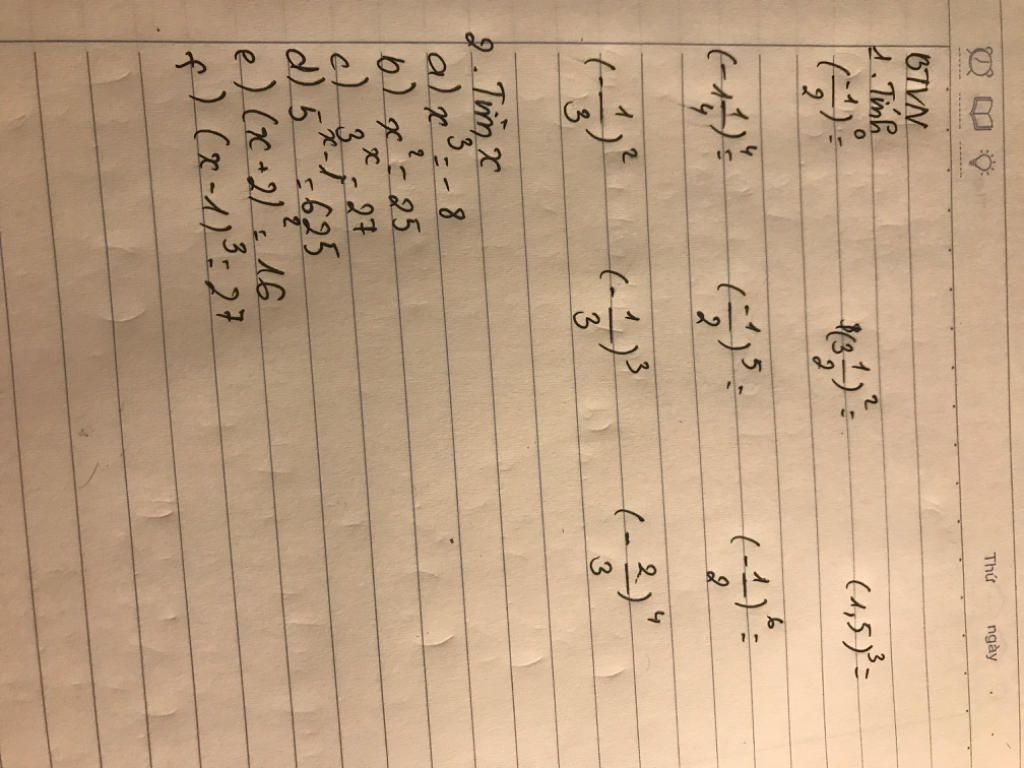 Thứ ngày
BTVN
1. Tính
(-1/2)^0 = (3 1/2)^2 = (1,5)^3 =
(-1 1/4)^4 = (-1/2)^5 = (-1/2)^6 =
(-1/3)^2 (-1/3)^3 (-2/3)^4
2. Tìm x
a) x^3 = -8
b) x^2 = 25
c) 3^x = 27
d) 5^x-1 = 625
e) (x+2)^2 = 16
f) (x-1)^3 = 27